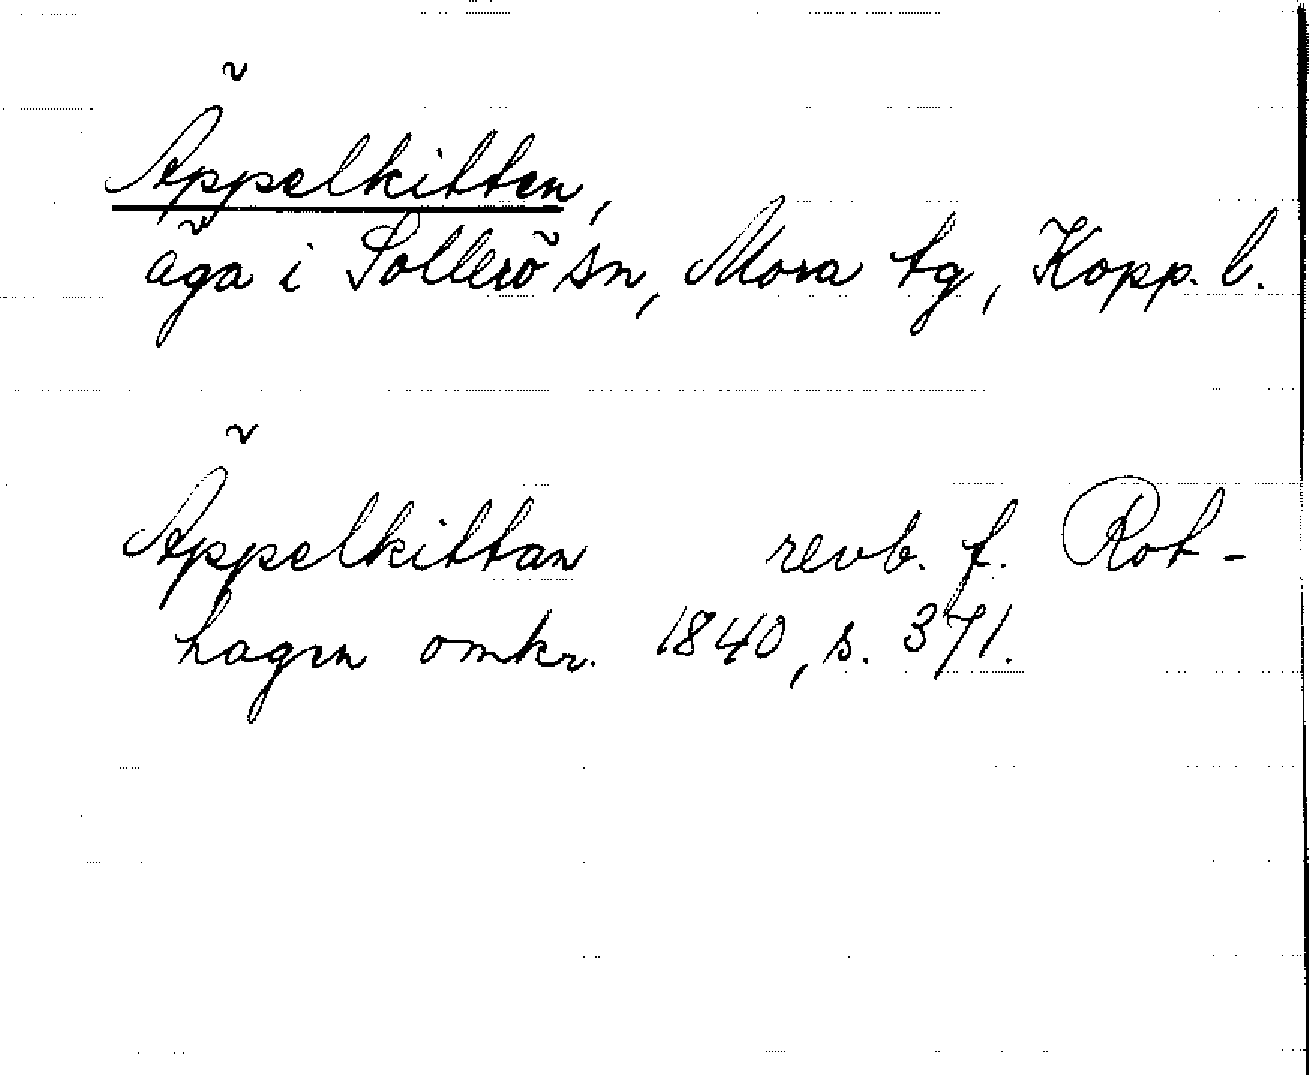 Äppelkitten,
äga i Sollerö sn, Mora tg, Kopp. l.
Äppelkittan revb. f. Rot-
hagen omkr. 1840, s. 371.